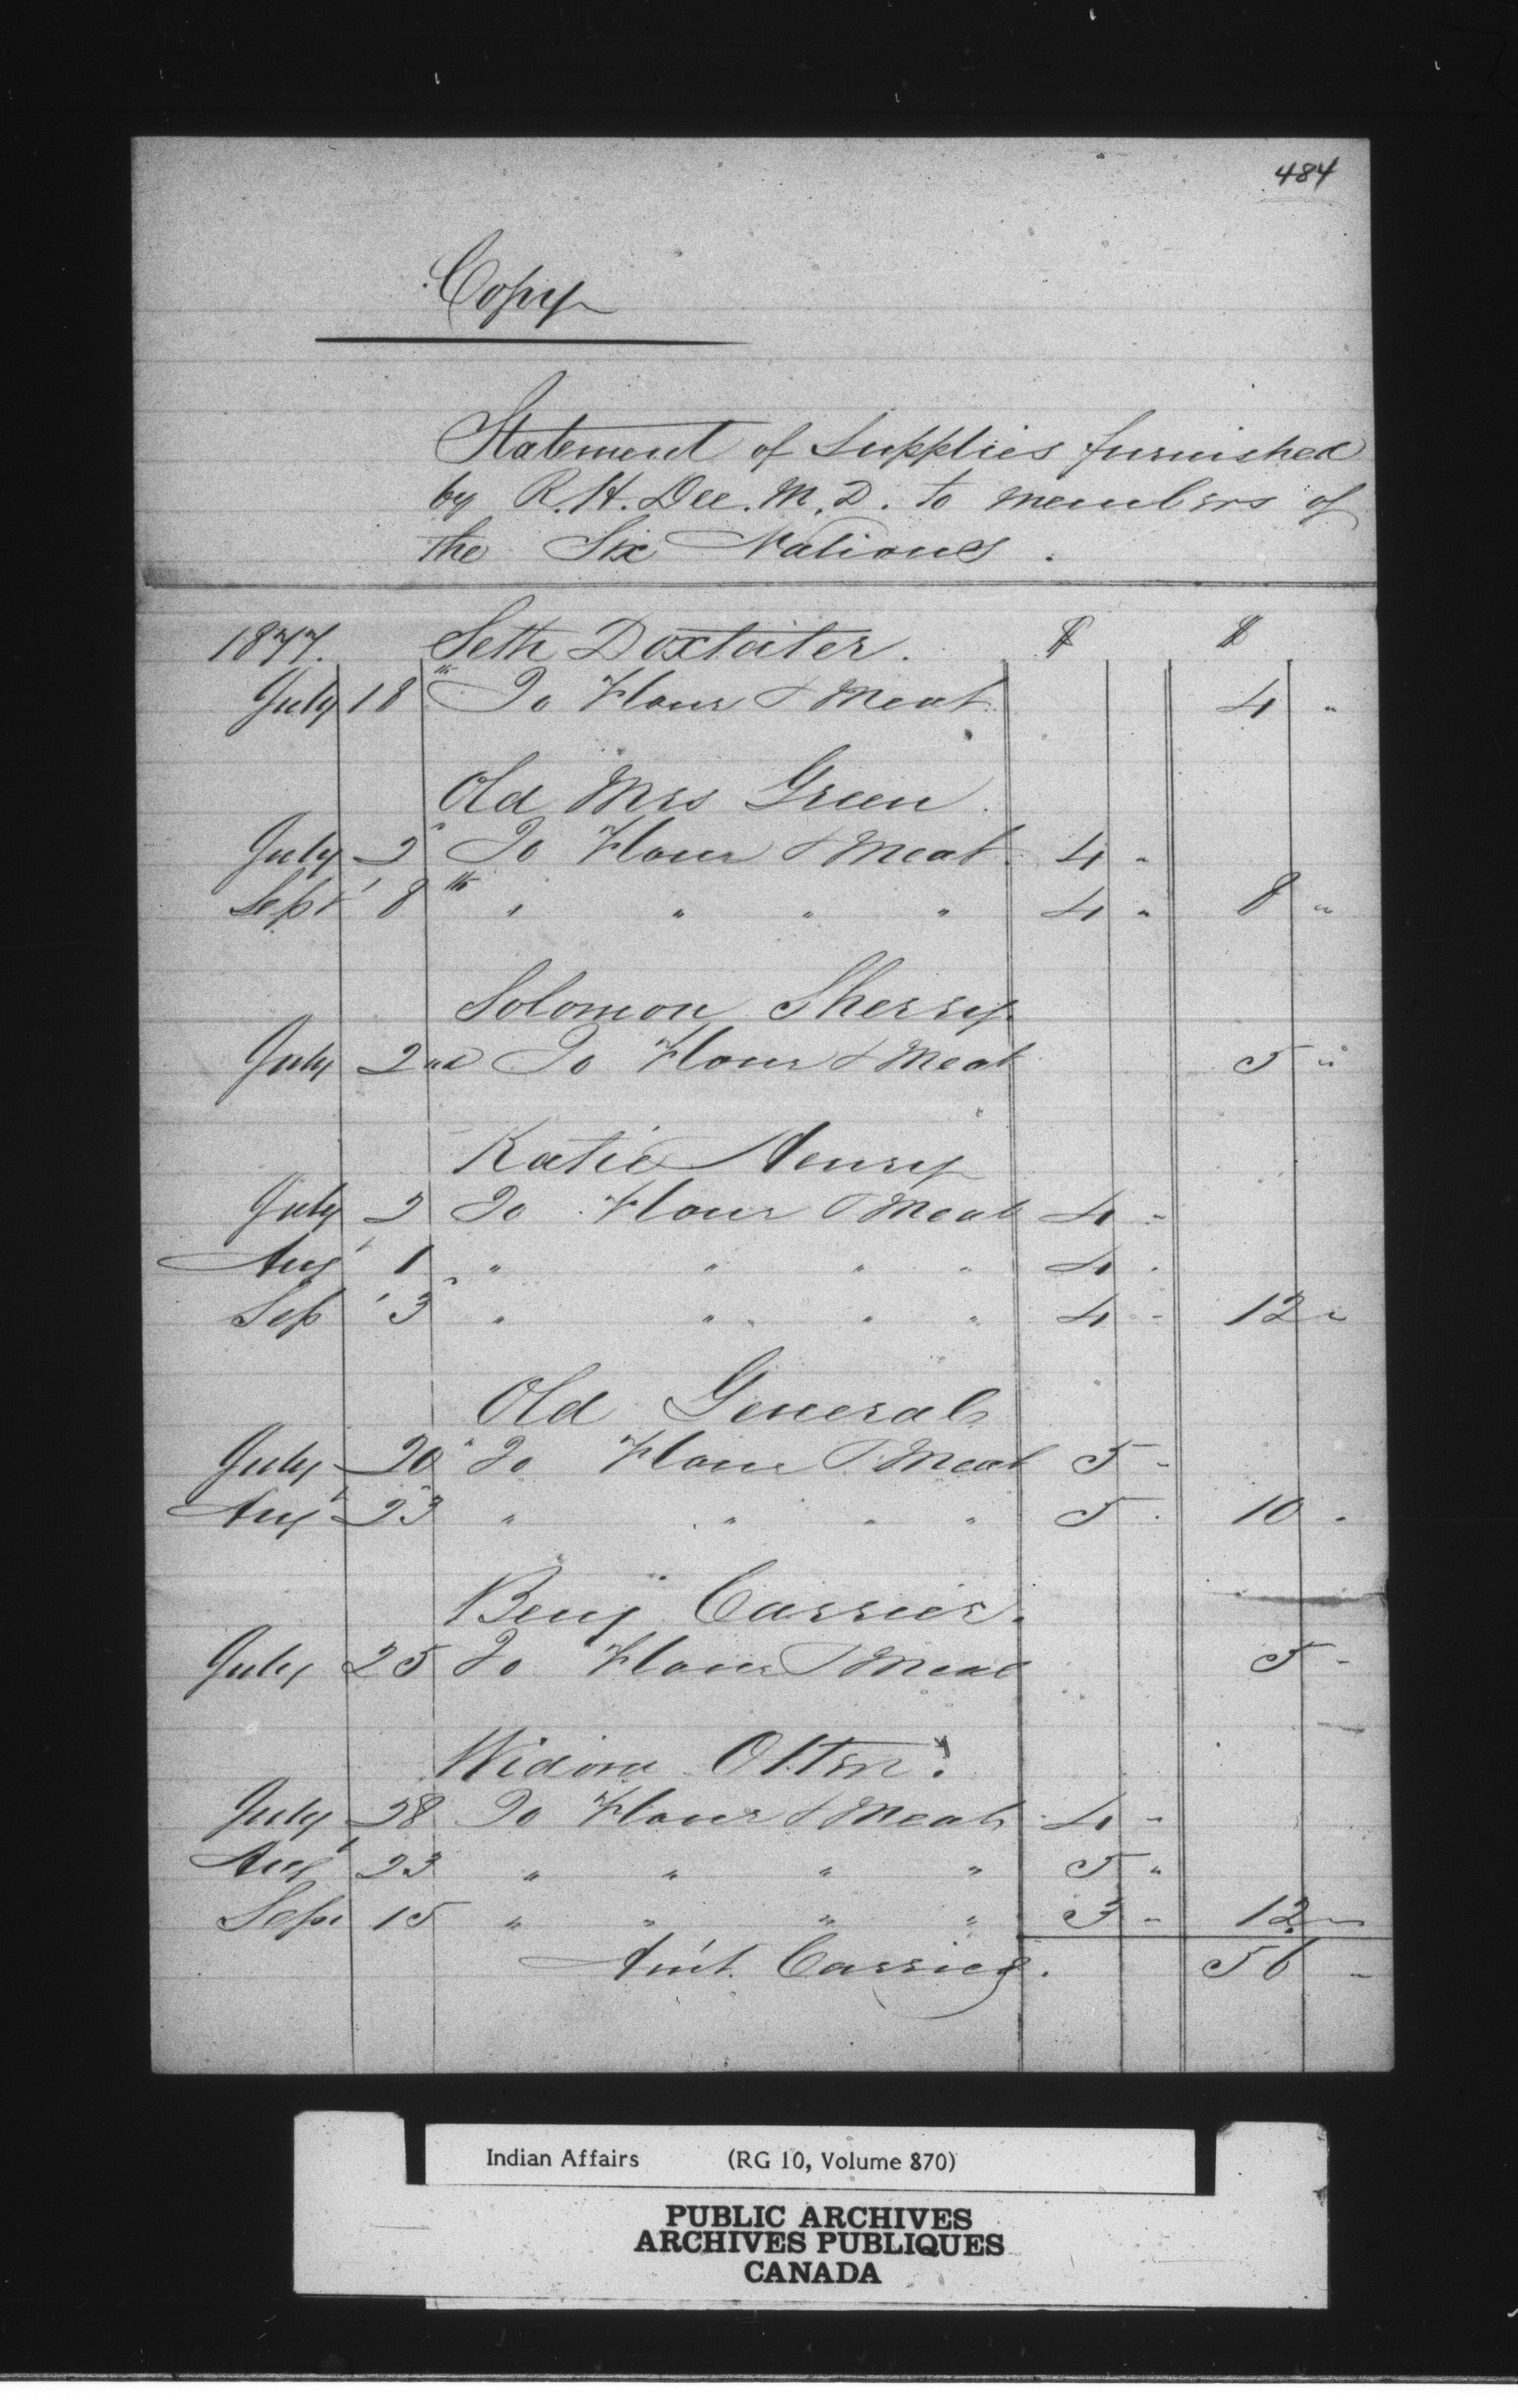 484
Copy
Statement of Supplies furnished
by R. H. Dee. M. D. to members of
the Six Nations.
1877. Seth Doxtater. $ $
July 18th To Flour & Meat 4 "
Old Mrs Green
July 2" To Flour & Meat 4 "
Sept 8th " " " " 4 " 8 "
Solomon Sherry
July 2nd To Flour & Meat 5 "
Katie Henry
July 2 To Flour & Meat 4 "
Augt 1 " " " " 4 "
Sep 3 " " " " 4 " 12 "
Old General
July 20" To Flour & Meat 5 "
Augt 23 " " " " 5 " 10 "
Benj Carrier.
July 25 To Flour & Meat 5 "
Widow Otter.
July 28 To Flour & Meat 4 "
Augt 23 " " " " 5 "
Sept 15 " " " " 3 " 12 "
Am't. Carried. 56 "
Indian Affairs (RG 10, Volume 870)
PUBLIC ARCHIVES
ARCHIVES PUBLIQUES
CANADA